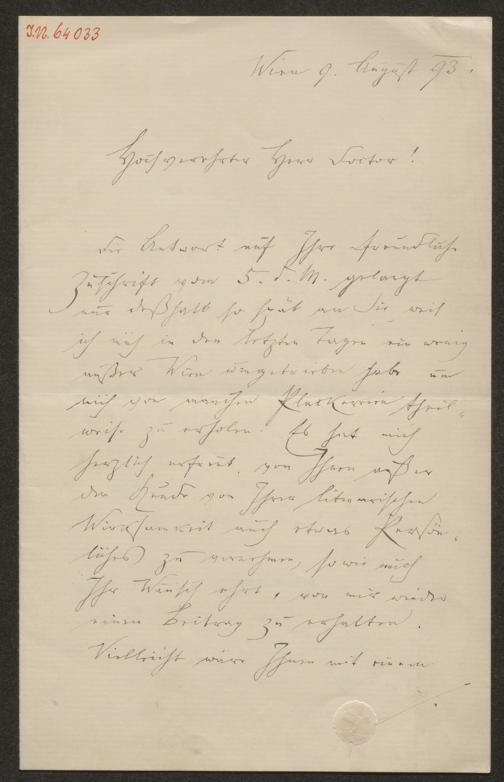 I.N. 64033
Wien 9. August 93.
Hochverehrter Herr Doctor!
Die Antwort auf Ihre freundliche
Zuschrift vom 5. d. M. gelangt
nur deßhalb so spät an Sie weil
ich mich in den letzten Tagen ein wenig
außer Wien umgetrieben habe um
mich von manchen Plackereien theil-
weise zu erholen. Es hat mich
herzlich erfreut, von Ihnen außer
der Kunde von Ihrer literarischen
Wirksamkeit auch etwas Persön-
liches zu vernehmen, sowie mich
Ihr Wunsch ehrt, von mir wieder
einen Beitrag zu erhalten.
Vielleicht wäre Ihnen mit einem